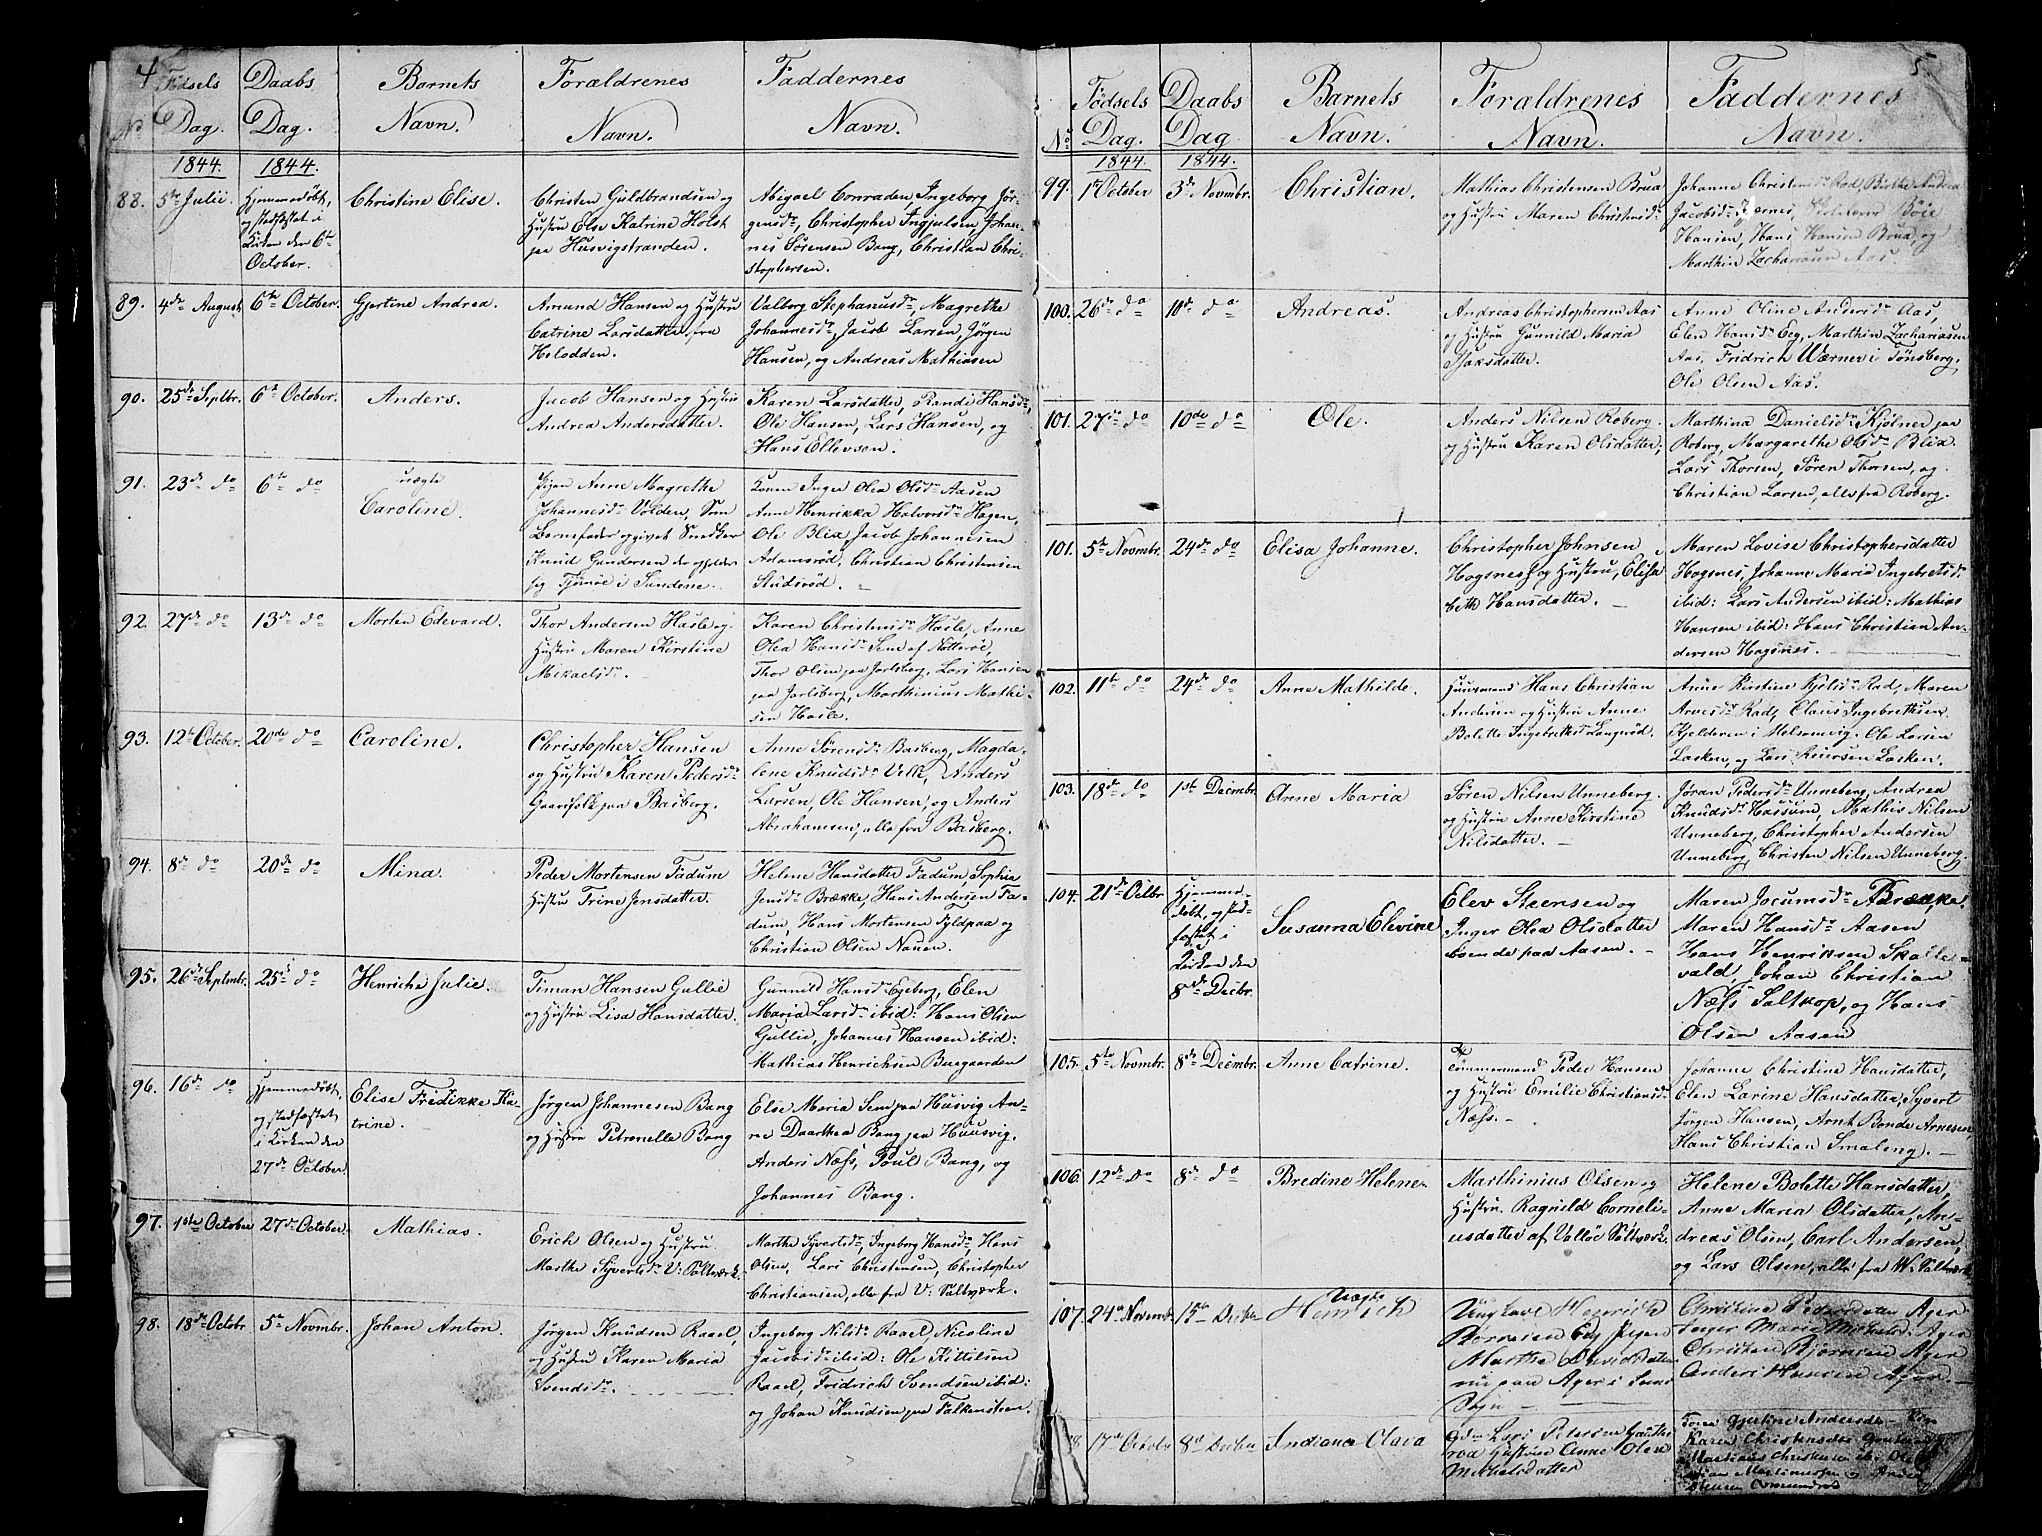 4
Nº
Fødsels
Dag.
Daabs
Dag.
Barnets
Navn.
Foraldrenes
Navn.
Faddernes
Navn.
1844.
1844.
88.
5te Julii
Hjemmedøbt,
og stadfæstet i
Kirken den 6te
October.
Christine Elise.
Christen Guldbrandsen og
Hustru Else Katrine Holst
paa Husvigstranden.
Abigael Conraden, Ingeborg Jør-
gensdr, Christopher Ingjulsen, Johan-
nes Sørensen Bang, Christian Chri-
stophersen.
89.
4de August
6te October.
Gjertine Andrea.
Amund Hansen og Hustru
Catrine Larsdatter, fra
Holodden.
Valborg Stephanusdr, Magrethe
Johannesdr, Jacob Larsen, Jørgen
Hansen, og Andreas Mathiasen
90.
25de Septbr.
6te October.
Anders.
Jacob Hansen og Hustru
Andrea Andersdatter.
Karen Larsdatter, Randi Hansdr,
Ole Hansen, Lars Hansen, og
Hans Ellevsen.
91.
23de do
6te do
uægte
Caroline.
Pigen Anne Magrethe
Johannesdr Volden, Som
Barnefader opgivet Snedker
Knud Gundersen der opholder
sig Tjømøe i Sundene.
Konen Inger Olea Olsdr Aasen
Anne Henrikka Halvorsdr Hagen,
Ole Blix, Jacob Johannesen
Adamsrød, Christian Christensen
Studsrød.
92.
27de do
13de do
Morten Edevard.
Thor Andersen Hasle og
Hustru Maren Kirstine
Mikaelsdr.
Karen Christensdr Hasle, Anne
Olea Hansdr Sem af Nøtterøe,
Thor Olsen paa Jarlsberg, Lars Hansen
paa Jarlsberg, Marthinius Mathi-
sen Hasle.
93.
12te October.
20de do
Caroline.
Christopher Hansen
og Hustru Karen Pedersdr
Gaardfolk paa Basberg.
Anne Sørensdr Basberg, Magda-
lene Knudsdr Velle, Anders
Larsen, Ole Hansen, og Anders
Abrahamsen, alle fra Basberg.
94.
8de do
20de do
Mina.
Peder Mortensen Fadum
Hustru Trine Jensdatter.
Helene Hansdatter Fadum, Sophia
Jensdr Brække, Hans Andersen Fa-
dum, Hans Mortensen Fyldpaa og
Christian Olsen Nauen.
95.
26de Septmbr.
25de do
Henriche Julie.
Timan Hansen Gullie
og Hustru Lisa Hansdatter.
Gunnild Hansdr Egeberg, Elen
Maria Larsdr ibid: Hans Olsen
Gullie, Johannes Hansen ibid:
Mathias Henrichsen Buegaarden
96.
16de do
Hjemmedøbt,
og stadfæstet
i Kirken den
27de October.
Elise Fredikke Ka-
trine.
Jørgen Johannesen Bang
og Hustru Petronelle Bang
Else Maria Sem paa Husvig, An-
ne Daarthea Bang paa Huusvig.
Anders Næss, Poul Bang, og
Johannes Bang.
97.
1ste October
27de October.
Mathias.
Erich Olsen og Hustru
Marthe Syvertsdr V: Saltværk.
Marthe Syvertsdr, Ingeborg Hansdr, Hans
Olsen, Lars Christensen, Christopher
Christiansen, alle fra V: Saltværk.
98.
18de Octobr.
5te Novmbr.
Johan Anton.
Jørgen Knudsen Raael,
og Hustru Karen Maria
Svendsdr.
Ingeborg Nilsdr Raael, Nicoline
Jacobsdr ibid: Ole Kittilsen
Raael, Fridrich Svendsen ibid:
og Johan Knudsen paa Falkensteen.
5.
No
Fødsels
Dag.
Daabs
Dag
Barnets
Navn.
Foraldrenes
Navn.
Faddernes
Navn.
1844.
1844.
99.
1ste October
3de Novmbr.
Christian.
Mathias Christensen Brua
og Hustru Maren Christensdr
Johanne Christensdr Rad, Birthe Andrea
Jacobsdr Bøie
Hansen, Hans Hansen Brua, og
Marthin Zachariasen Aas
100.
26de do
10de do
Andreas.
Andreas Christophersen Aas
og Hustru Gunnild Maria
Isaksdatter.
Anne Oline Andersdr Aas,
Elen Hansdr Eeg, Marthin Zachariasen
Aas, Fridrich Wærner i Tønsberg,
Ole Olsen Aas.
101.
27de do
10de do
Ole.
Anders Nilsen Roberg.
og Hustru Karen Olsdatter,
Marthina Danielsdr Kjølner, paa
Roberg, Margarethe Olsdr Blix.
Lars Thorsen, Søren Thorsen, og
Christian Larsen, alle fra Roberg.
101.
5te Novmbr.
24de do
Elisa Johanne.
Christopher Johnsen
Hogsnes og Hustru, Elisa
beth Hansdatter.
Maren Lovise Christophersdatter
Hogsnes, Johanne Maria Ingebretsdr
ibid: Lars Andersen ibid: Mathias
Hansen ibid: Hans Christian An-
dersen Hogsnes.
102.
11te do
24de do
Anne Mathilde.
Huusmand Hans Christian
Andersen og Hustru Anne
Bolette Ingebretsdr Langrød.
Anne Kirstine Kjelsdr Rad, Maren
Arvesdr Rad, Claus Ingebrethsen
Kjelderen i Melsomvig. Ole Larsen
Lasken, og Lars Iversen Lasken.
103.
18de do
1ste Decmbr.
Anne Maria
Søren Nilsen Unneberg.
og Hustru Anne Kirstine
Nilsdatter.
Jøran Pedersdr Unneberg, Andrea
Knudsdr Hassum, Mathis Nilsen
Unneberg, Christopher Andersen
Unneberg, Christen Nilsen Unneberg.
104.
21de Octbr
Hjemme-
døbt, og stad-
fæstet i
Kirken den
8de Decbr.
Susanna Elevine
Elev Steensen og
Inger Olea Olsdatter
boende paa Aasen.
Maren Jocumsdr Brække,
Maren Hansdr Aasen
Hans Henriksen Skalle-
vald, Johan Christian
Næss Saltkop, og Hans
Olsen Aasen
105.
5te Novmbr.
8de Decmbr.
Anne Catrine.
Tømmermand Peder Hansen
og Hustru Emilie Christiansdr
Næss.
Johanne Christine Hansdatter,
Elen Larine Hansdatter, Syvert
Jørgen Hansen, Arnt Bonde Arnesen,
Hans Christian Smaleng.
106.
12te do
8de do
Bredine Helene
Marthinius Olsen og
Hustru Ragnild Corneli-
usdatter af Valløe Saltværk.
Helene Bolette Hansdatter,
Anne Maria Olsdatter, An-
dreas Olsen, Carl Andersen,
og Lars Olsen, alle fra W: Saltværk
107.
24de Novembr
15de Decbr
Uægte
Henrich
Ung karl Henrich
Børresen Eeg Pigen
Marthe Davidsdatter
nu paa Ager i Sems
Sogn
Christine Pedersdatter Ager
Inger Marie Michelsdr Ager
Christen Bjørnsen Ager
Anders Hansen Ager.
8
17de Octobr
8de Decbr
Andiana Olava
Gdm Lars Petersen Gauthe
rød Hustrue Anne Olea
Michelsdatter
Tone Gjertine Andersdr
Karen Christensdr
Martinus Christensen ib. Ole
Martinussen og Anders
Hansen